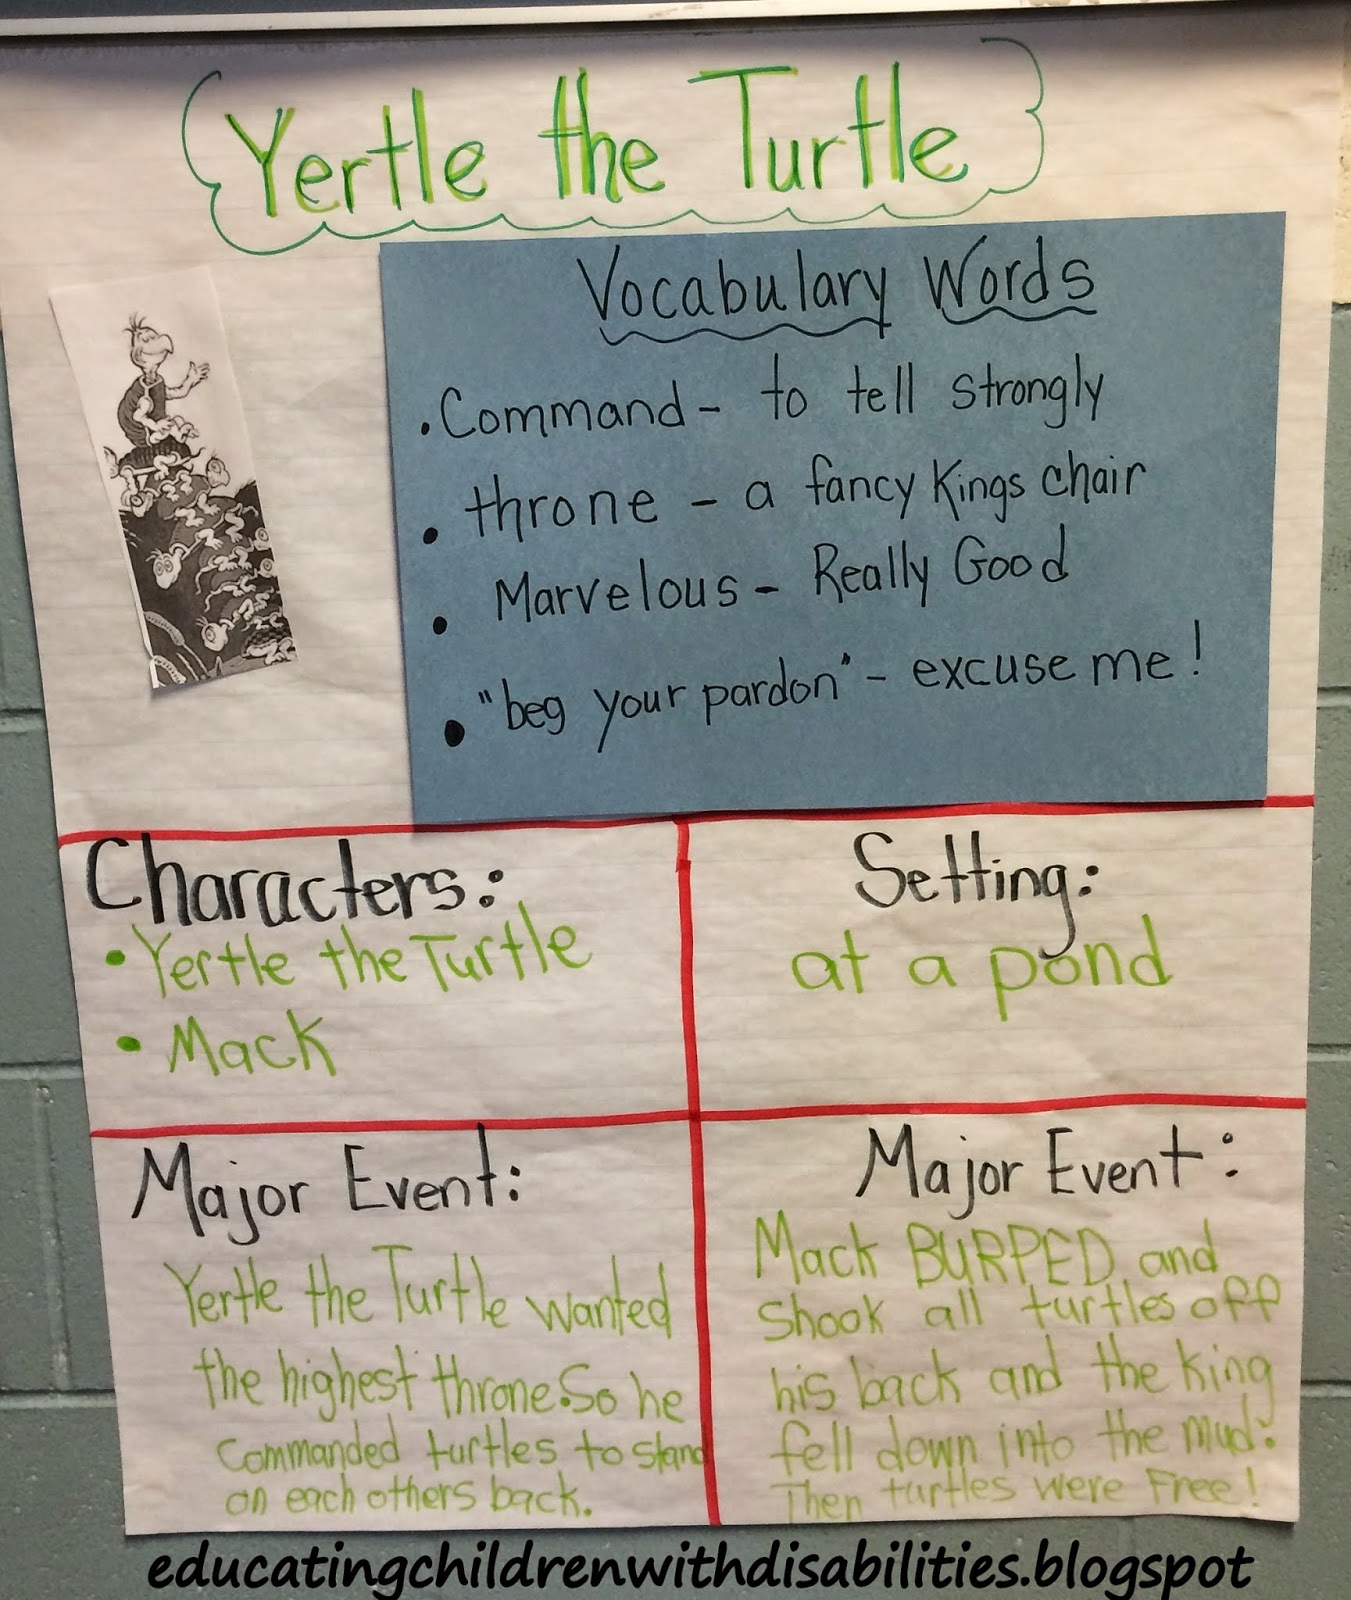 Yertle the Turtle
Vocabulary Words
• Command - to tell strongly
• throne - a fancy Kings chair
• Marvelous - Really Good
• "beg your pardon" - excuse me!
Characters:
• Yertle the Turtle
• Mack
Setting:
at a pond
Major Event:
Yertle the Turtle wanted
the highest throne. So he
commanded turtles to stand
on each others back.
Major Event:
Mack BURPED and
shook all turtles off
his back and the king
fell down into the mud.
Then turtles were Free!
educatingchildrenwithdisabilities.blogspot